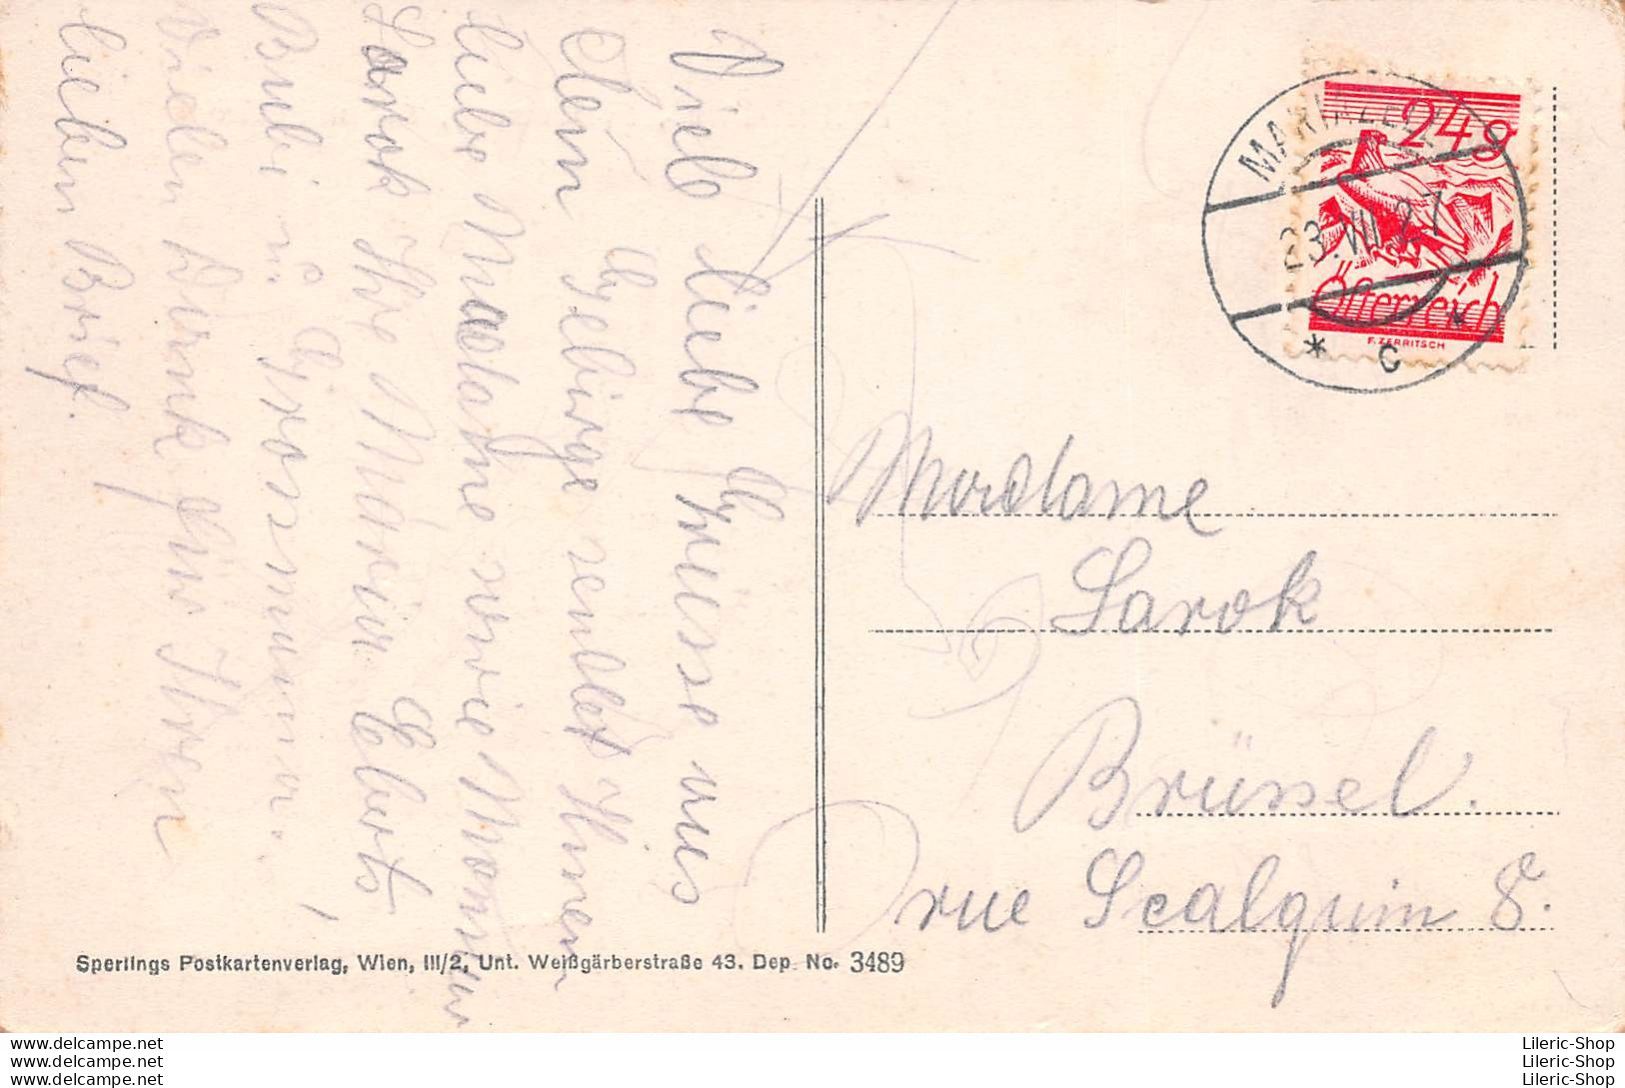 Viele liebe Grüsse aus
dem Gebirge sendet Ihnen
liebe Madame sowie Monsieur
Sarok Ihre Maria Eberts,
Bubi u. Grossmama.
Vielen Dank für Ihren
lieben Brief.
MARIAZELL
23.VII.27
* C *
24g
Österreich
F. ZERRITSCH
Madame
Sarok
Brüssel.
rue Scalquin 8.
Sperlings Postkartenverlag, Wien, III/2, Unt. Weißgärberstraße 43. Dep. No. 3489
Lileric-Shop
Lileric-Shop
Lileric-Shop
delcampe.net
delcampe.net
delcampe.net